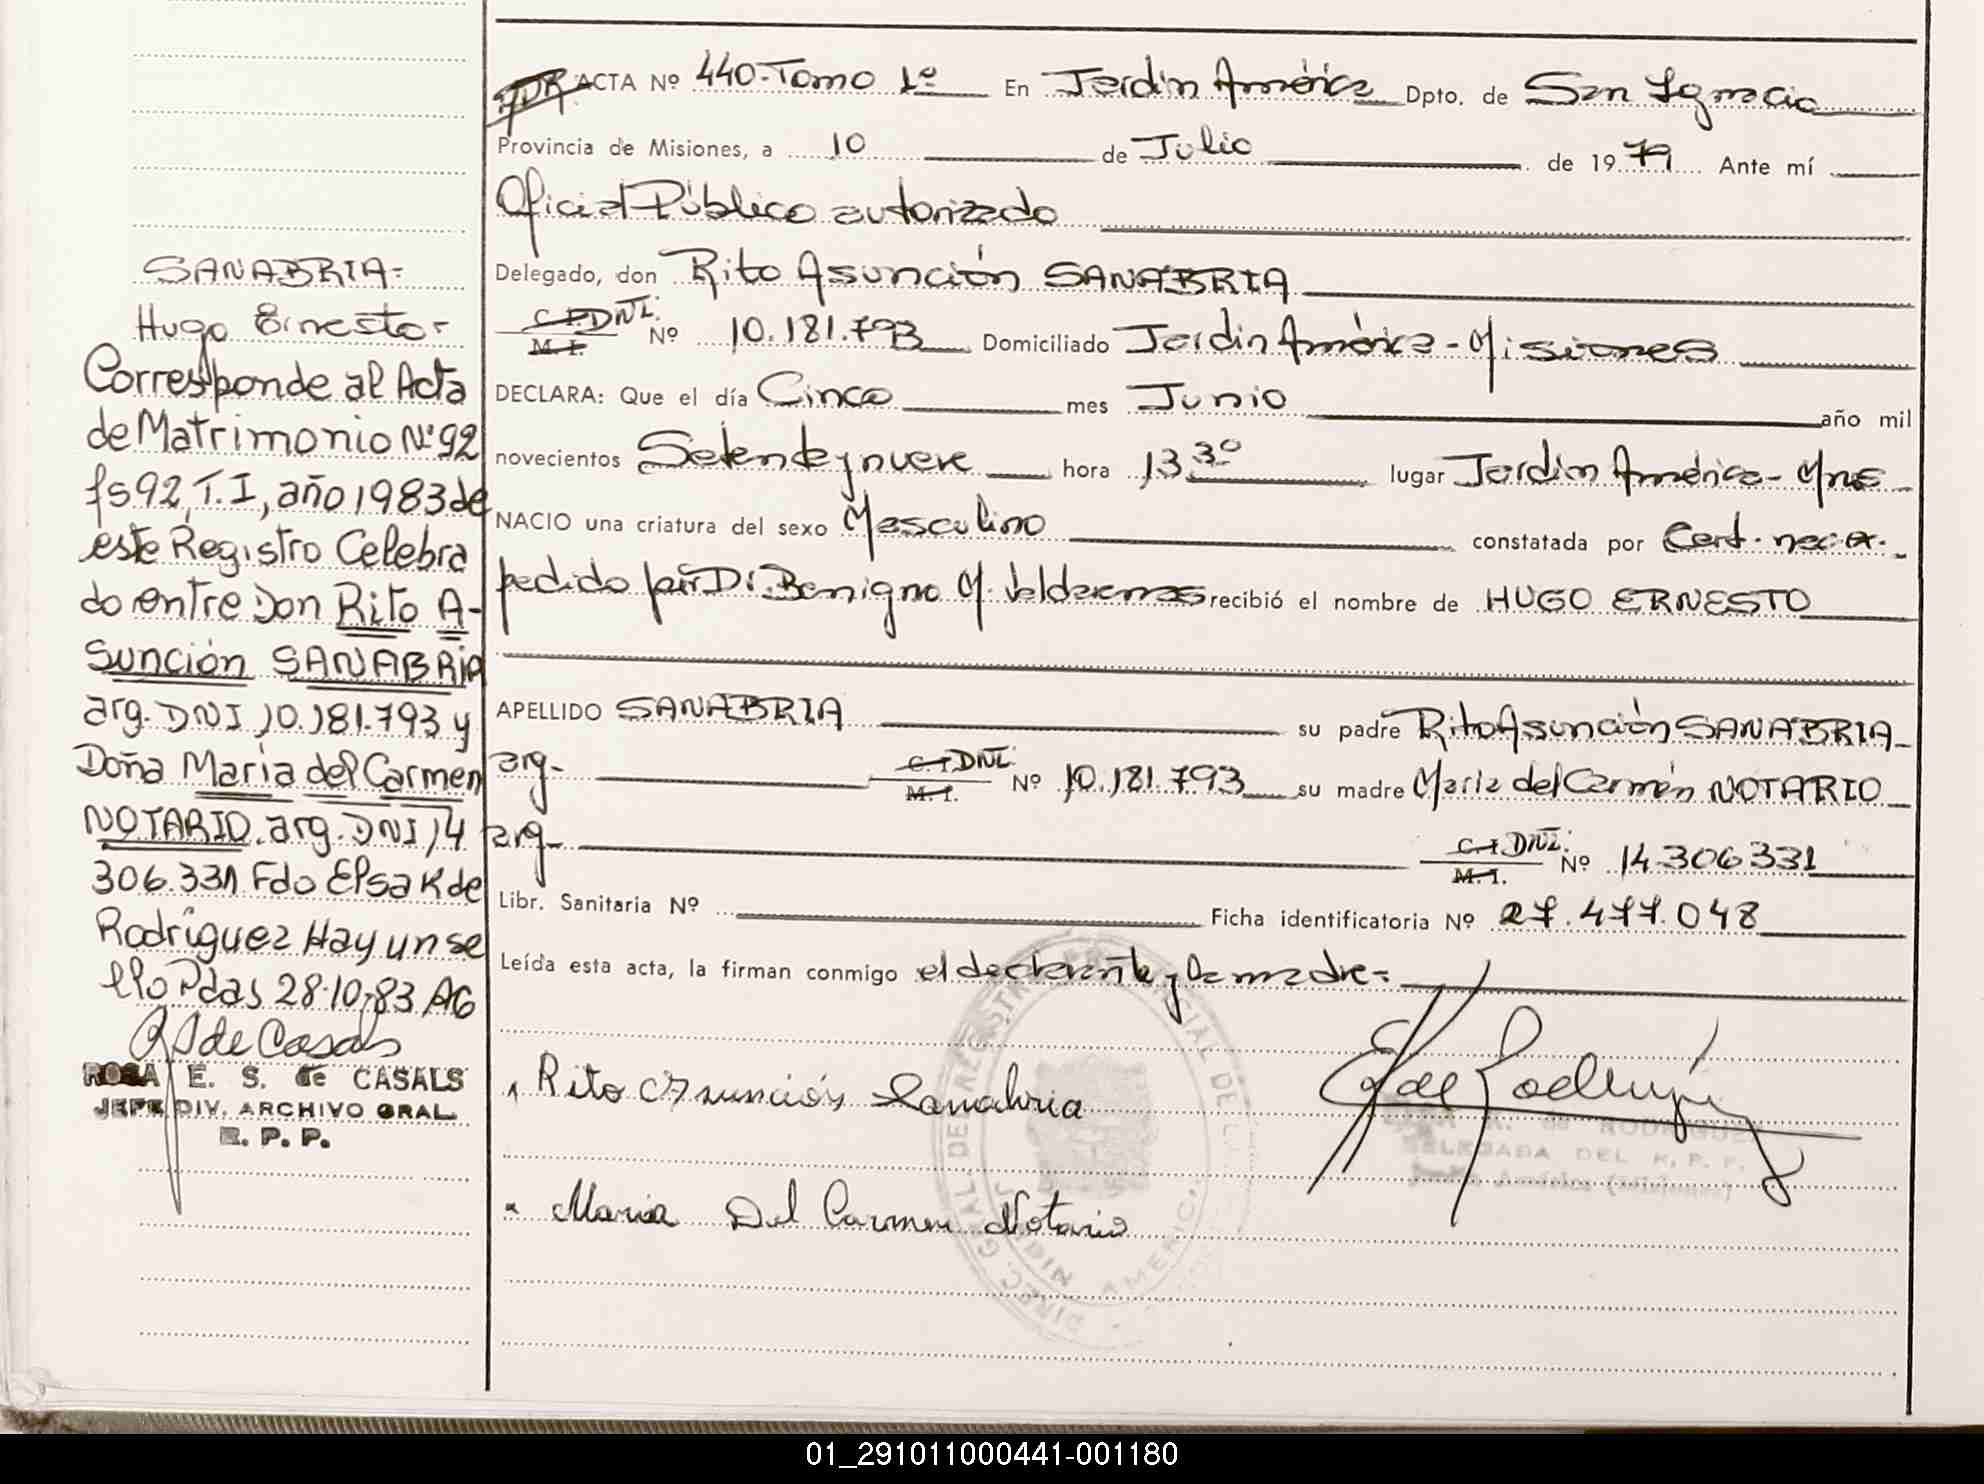 SANABRIA=
Hugo Ernesto-
Corresponde al Acta
de Matrimonio Nº92
fs92, T.I, año 1983 de
este Registro Celebra
do entre Don Rito A-
sunción SANABRIA
arg. DNI 10.181.793 y
Doña María del Carmen
NOTARIO. arg. DNI 14
306.331 Fdo Elsa K de
Rodríguez Hay un se
llo Pdas 28-10-83 AG
RSde Casals
ROSA E. S. de CASALS
JEFE DIV. ARCHIVO GRAL.
R. P. P.
ACTA Nº 440-Tomo 1º En Jardín América Dpto. de San Ignacio
Provincia de Misiones, a 10 de Julio de 1979 Ante mí
Oficial Público autorizado
Delegado, don Rito Asunción SANABRIA
C.I.DNI. M.I. Nº 10.181.793 Domiciliado Jardín América - Misiones
DECLARA: Que el día Cinco mes Junio año mil
novecientos Setenta y nueve hora 13 30 lugar Jardín América - Mnes
NACIO una criatura del sexo Masculino constatada por Cert. nac. ex.
pedido por Dr. Benigno M. Valdarenas recibió el nombre de HUGO ERNESTO
APELLIDO SANABRIA su padre Rito Asunción SANABRIA-
arg- C.I.DNI. M.I. Nº 10.181.793 su madre María del Carmén NOTARIO
arg- C.I.DNI. M.I. Nº 14.306331
Libr. Sanitaria Nº Ficha identificatoria Nº 27.477.048
Leída esta acta, la firman conmigo el declarante y la madre=
Rito Asunción Sanabria
EKde Rodríguez
K. de RODRIGUEZ
DELEGADA DEL R. P. P.
Jardín América (Misiones)
Maria Del Carmen Notario
01_291011000441-001180